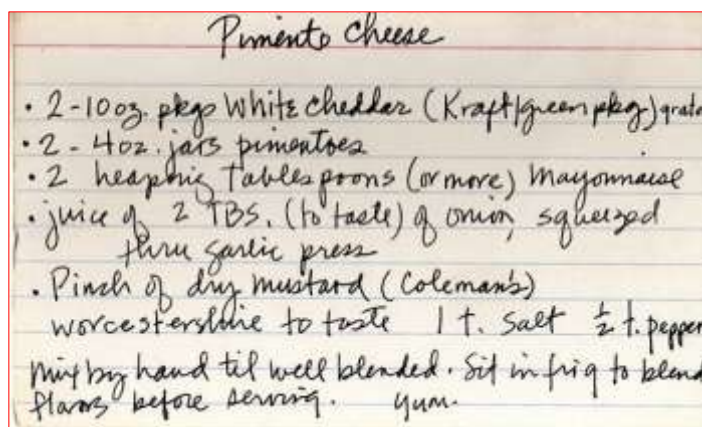 Pimento Cheese
• 2-10oz. pkgs White cheddar (Kraft/green pkg) grate
• 2 - 4oz. jars pimentoes
• 2 heaping Tablespoons (or more) Mayonnaise
• juice of 2 TBS. (to taste) of onion, squeezed
thru garlic press
• Pinch of dry mustard (Coleman's)
worcestershire to taste 1 t. salt ½ t. pepper
Mix by hand til well blended. Sit in frig to blend
flavors before serving. Yum.